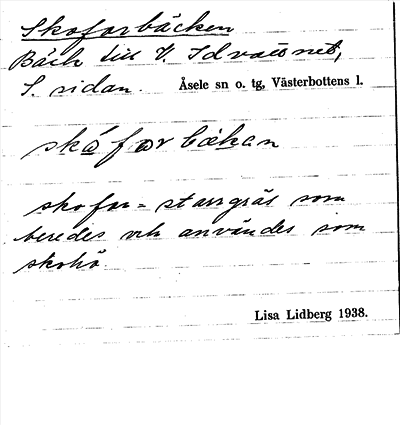 Skoforbäcken
Bäck till V. Idvattnet,
S. sidan. Åsele sn o. tg, Västerbottens l.
skáforbækan
skofor = starrgräs som
beredes och användes som
skohö
Lisa Lidberg 1938.